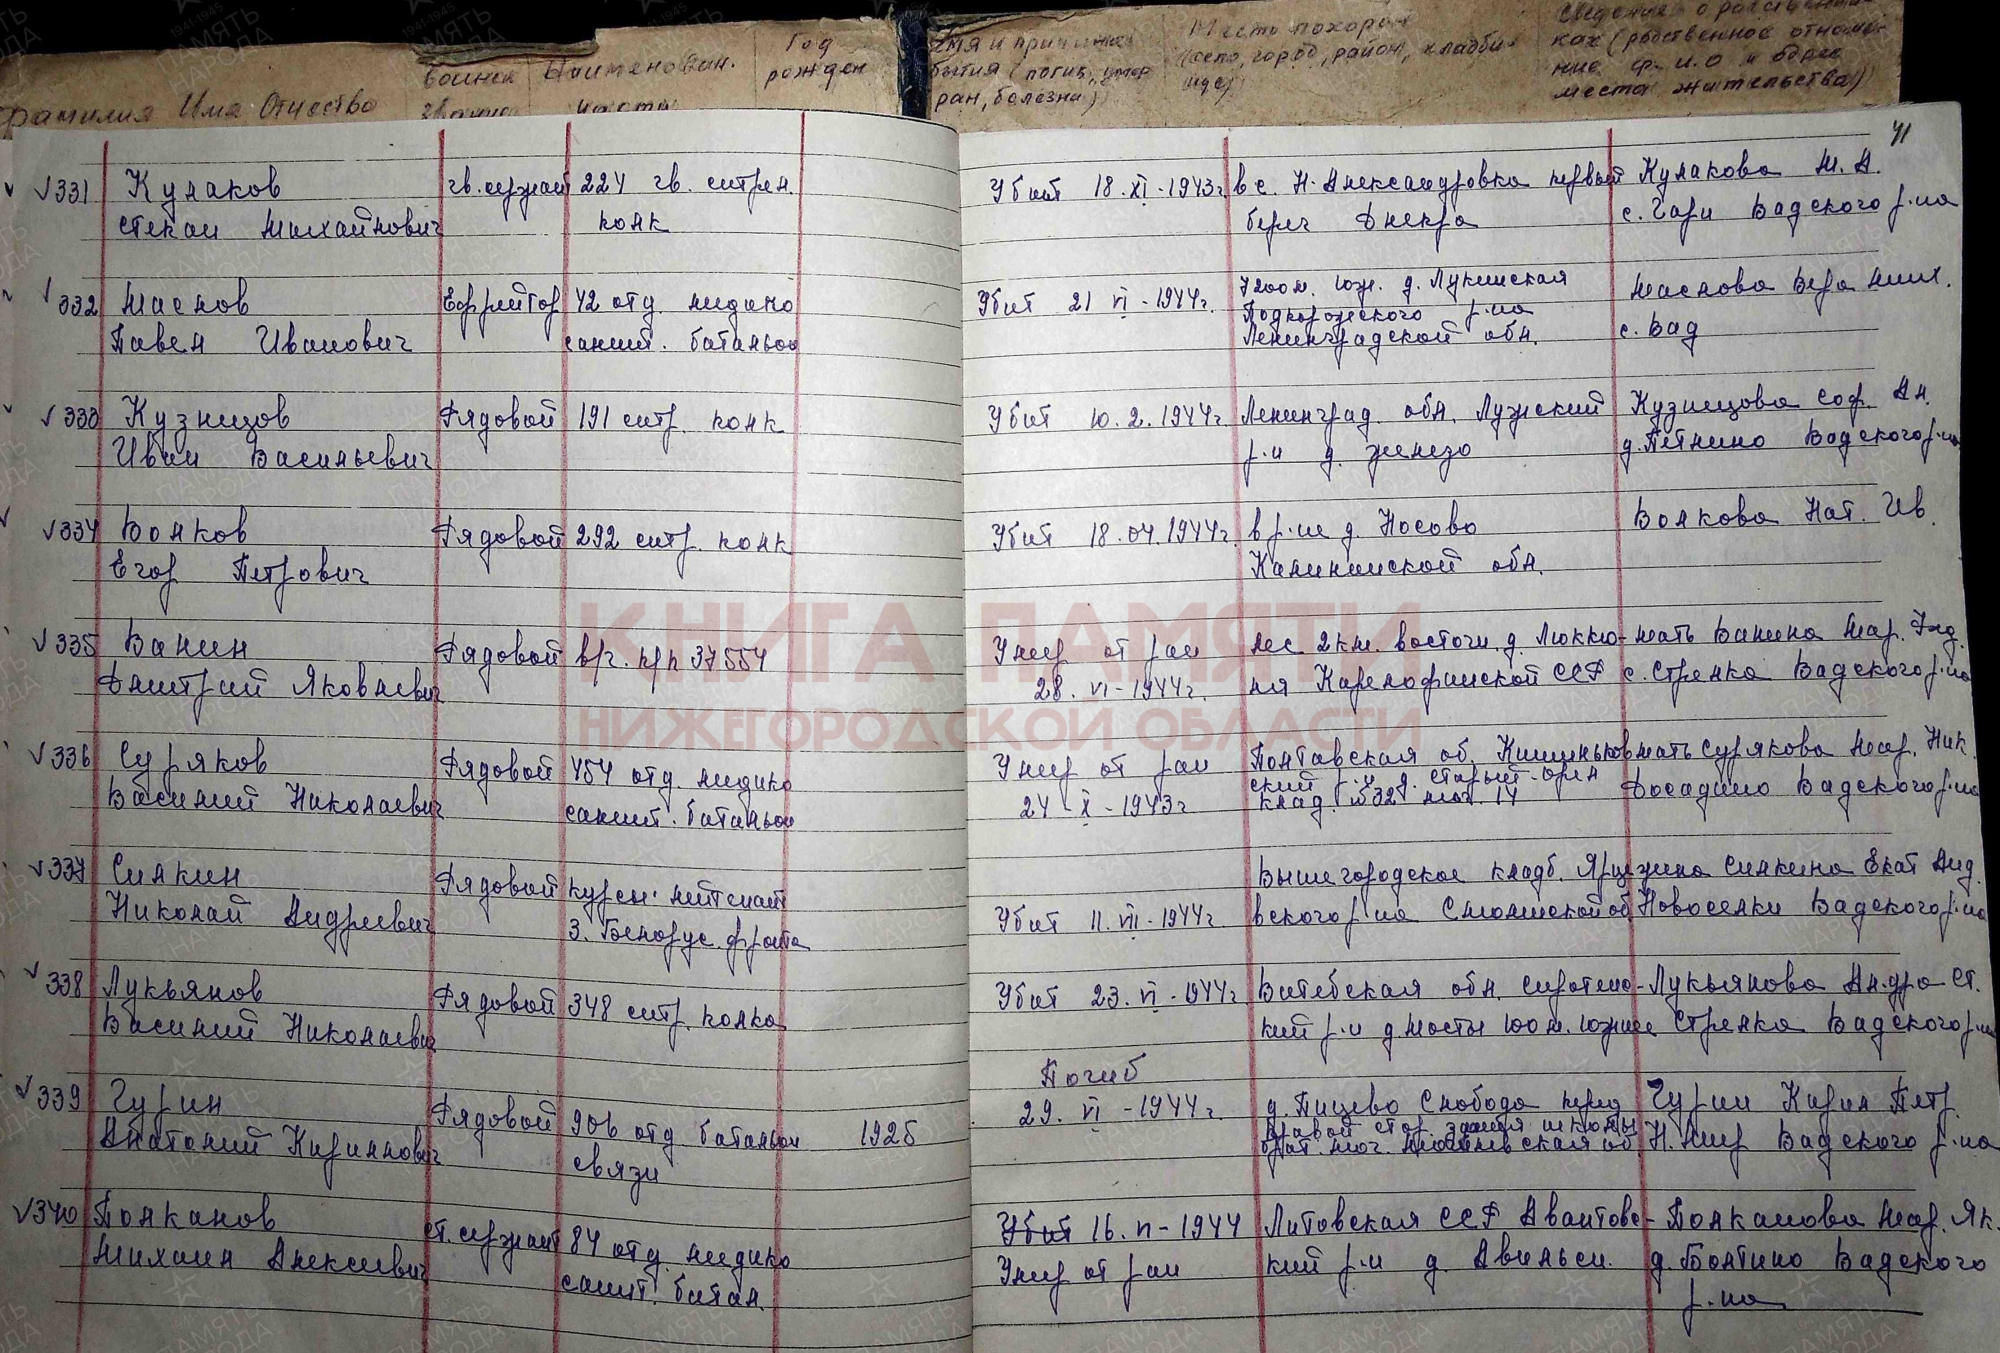 Фамилия Имя Отчество
воинск звание
Наименован. части
Год рожден
бытия (погиб, умер
ран, болезни)
Место похорон
(село, город, район, кладби-
ще)
сведения о родственни-
ках (родственное отноше-
ние ф.и.о и адрес
места жительства)
41
331 Кулаков гв. сержант 224 гв. стрел. Убит 18.XI-1943г. в с. Н-Александровка первый Кулакова М.А.
Степан Михайлович полк берег Днепра с. Гари Вадского р-на
332 Маслов Ефрейтор 42 отд. медико Убит 21 VI-1944г. 1200м. юж. д. Лукинская Маслова Вера Мих.
Подпорожского р-на
Павел Иванович санит. батальон Ленинградской обл. с. Вад
333 Кузнецов Рядовой 191 стр. полк Убит 10.2.1944г. Ленинград. обл. Лужский Кузнецова Соф. Ал.
Иван Васильевич р-н д. Железо д. Петлино Вадского р-на
334 Волков Рядовой 292 стр. полк Убит 18.04.1944г. в р-не д. Носово Волкова Нат. Ив.
Егор Петрович Калининской обл.
335 Ванин Рядовой в/г. п/п 37554 Умер от ран лес 2км. восточн. д. Люккю- мать Ванина Мар.
Дмитрий Яковлевич 28.VI-1944г. ля Карелофинской ССР с. Стрелка Вадского р-на
336 Суряков Рядовой 454 отд. медико Умер от ран Полтавская об. Кишеньков мать Сурякова Мар. Ник.
ский р-н д. Старый-Орлик
Василий Николаевич санит. батальон 24-X-1943г клад. №32 мог. 14 Досадино Вадского р-на
337 Силкин Рядовой курсы лейтенант Вышегородское кладб. Ярце жена Силкина Екат Анд.
Николай Андреевич Убит 11.VII-1944г. вского р-на Смоленской об Новоселки Вадского р-на
3. Белорус. фронта
338 Лукьянов Рядовой 348 стр. полка Убит 23.VI-1944г. Витебская обл. Сиротино- Лукьянова Ал-дра Ст.
Василий Николаевич кий р-н д. Мосты 100м. южнее Стрелка Вадского р-на
Погиб
339 Гурин Рядовой 906 отд. батальон 1925 29.VI-1944г. д. Пищево Слобода перед Гурин Кирил Петр.
правой стор. здания школы
Анатолий Кириллович связи брат. мог. Могилевская об Н. Мир Вадского р-на
340 Полканов ст. сержант 84 отд. медико Убит 16.II-1944 Литовская ССР Авантовс- Полканова Мар. Як.
Михаил Алексеевич санит. батал. Умер от ран кий р-н д. Авильси. д. Болтино Вадского
р-на
КНИГА ПАМЯТИ
НИЖЕГОРОДСКОЙ ОБЛАСТИ
ПАМЯТЬ НАРОДА
1941-1945